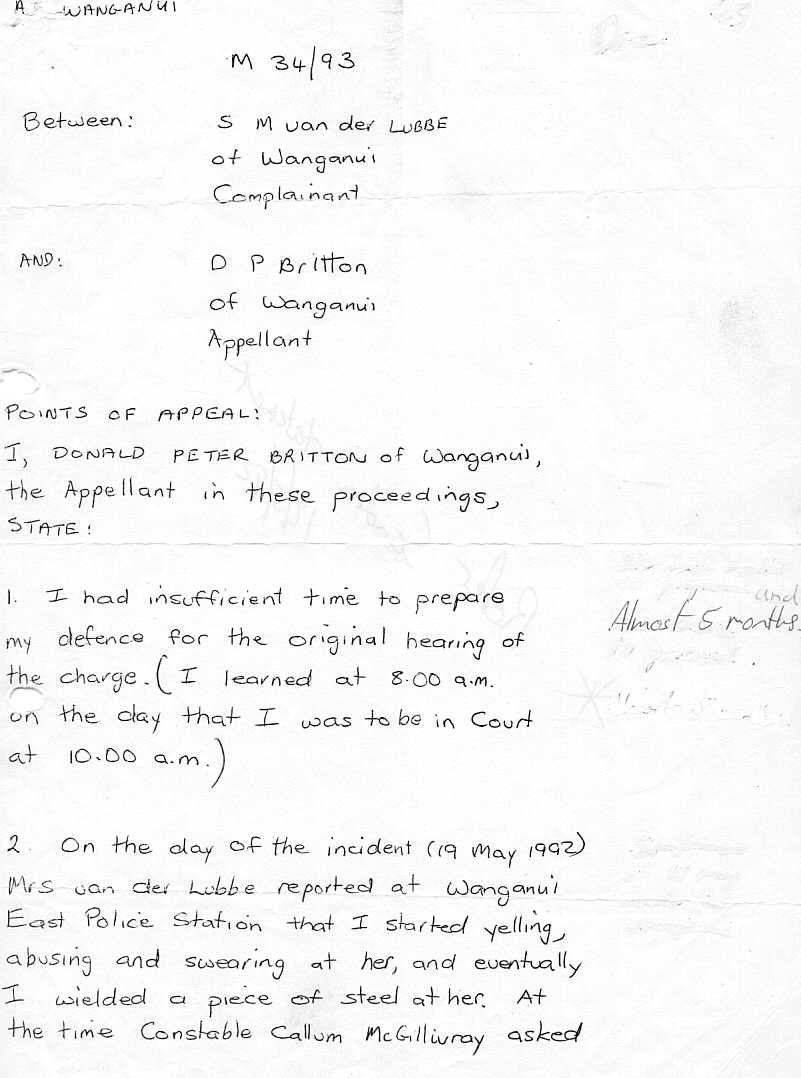 AT WANGANUI
M 34/93
Between: S M van der LUBBE
of Wanganui
Complainant
AND: D P Britton
of Wanganui
Appellant
POINTS OF APPEAL:
I, DONALD PETER BRITTON of Wanganui,
the Appellant in these proceedings,
STATE:
1. I had insufficient time to prepare
my defence for the original hearing of
the charge. (I learned at 8.00 a.m.
on the day that I was to be in Court
at 10.00 a.m.)
and
Almost 5 months.
2. On the day of the incident (19 May 1992)
Mrs van der Lubbe reported at Wanganui
East Police Station that I started yelling,
abusing and swearing at her, and eventually
I wielded a piece of steel at her. At
the time Constable Callum McGillivray asked